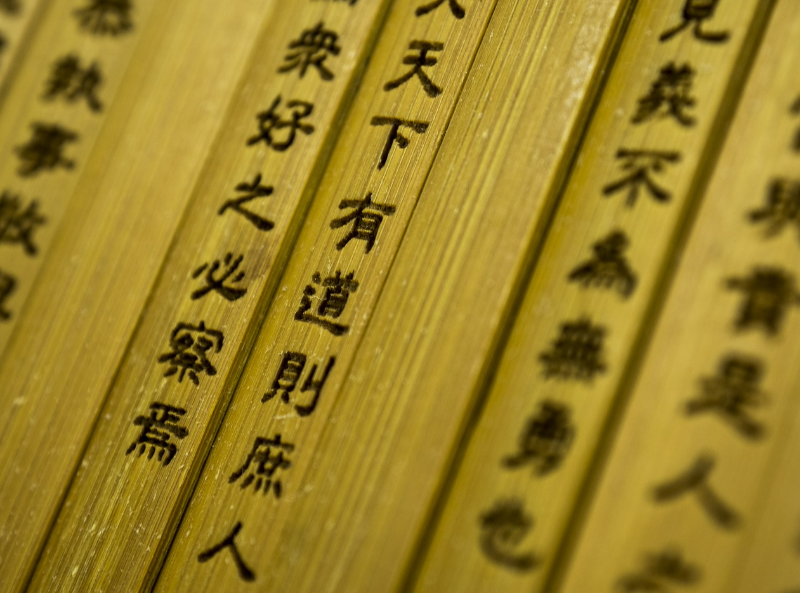 與貴是人
見義不為無勇也
天下有道則庶人
衆好之必察焉
恭執事敬